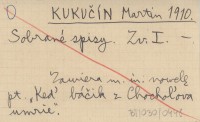 O KUKUČÍN Martin 1910.
Sobrané spisy. Zv. I. —
Zawiera m. in. nowelę
pt. „Keď báčik z Chochoľova
umrie".